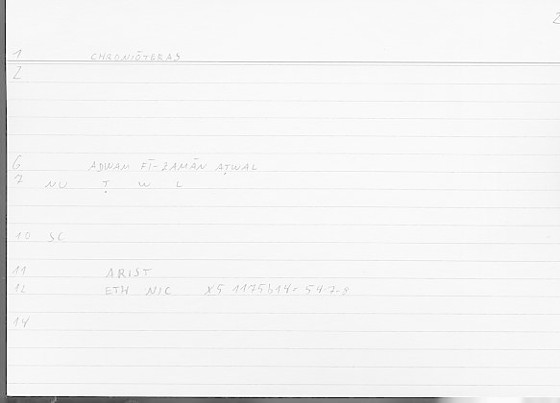 2
1 CHRONIŌTERAS
2
6 ADWAM FĪ-ZAMĀN AṬWAL
7 NU Ṭ W L
10 SC
11 ARIST
12 ETH NIC X5 1175b14
14